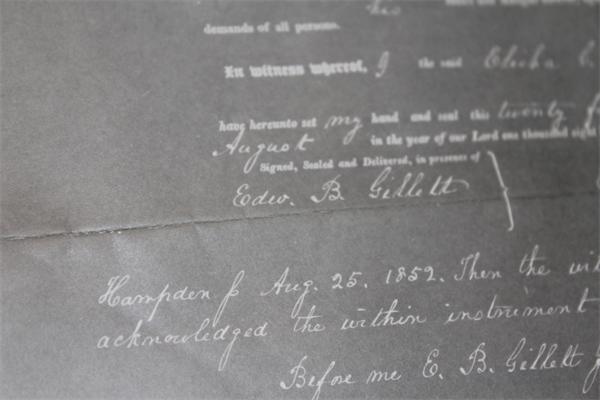 his
demands of all persons.
In witness whereof, I the said Elisha C.
have hereunto set my hand and seal this twenty
August in the year of our Lord one thousand eight
Signed, Sealed and Delivered, in presence of
Edw. B. Gillett
Hampden ss Aug. 25. 1852. Then the wit
acknowledged the within instrument
Before me E. B. Gillett J